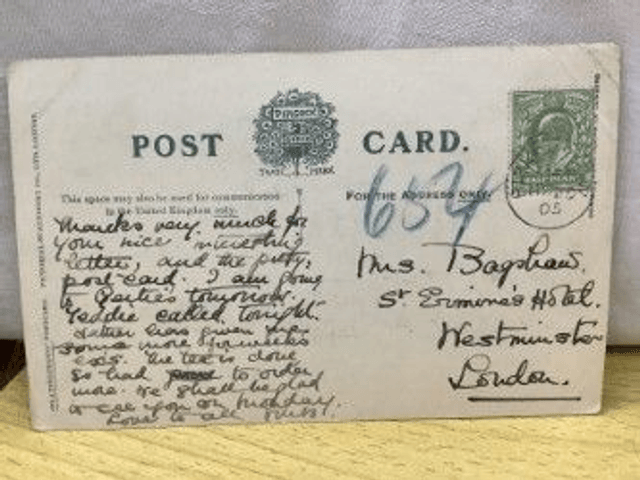 POST CARD.
PEACOCK
TRADE MARK
This space may also be used for communication
in the United Kingdom only.
FOR THE ADDRESS ONLY.
654
05
Thanks very much for
your nice interesting
letter, and the pretty
post-card. I am going
to Gerties tomorrow.
Teddie called tonight.
Father has given me
some more
eggs. The tea is done
so had to order
more. We shall be glad
to see you on Monday.
Love to all
Mrs. Bagshaw.
St Ermine's Hotel.
Westminster
London.